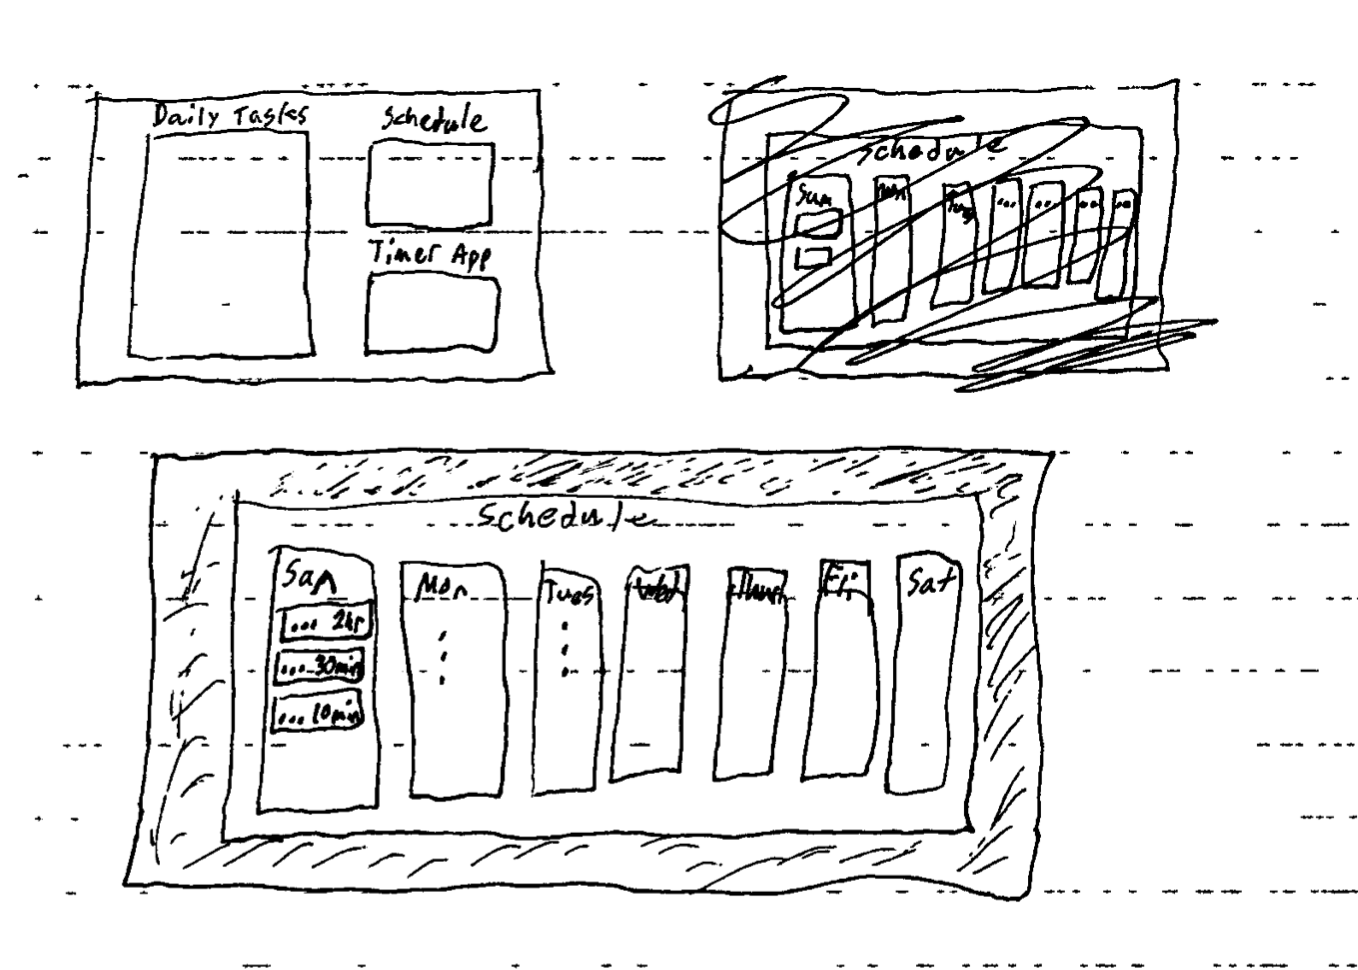 Daily Tasks
Schedule
Timer App
Schedule
Sun
Mon
Tues
...
...
...
...
Schedule
Sun
... 2hr
... 30min
... 10min
Mon
Tues
Wed
Thurs
Fri
Sat